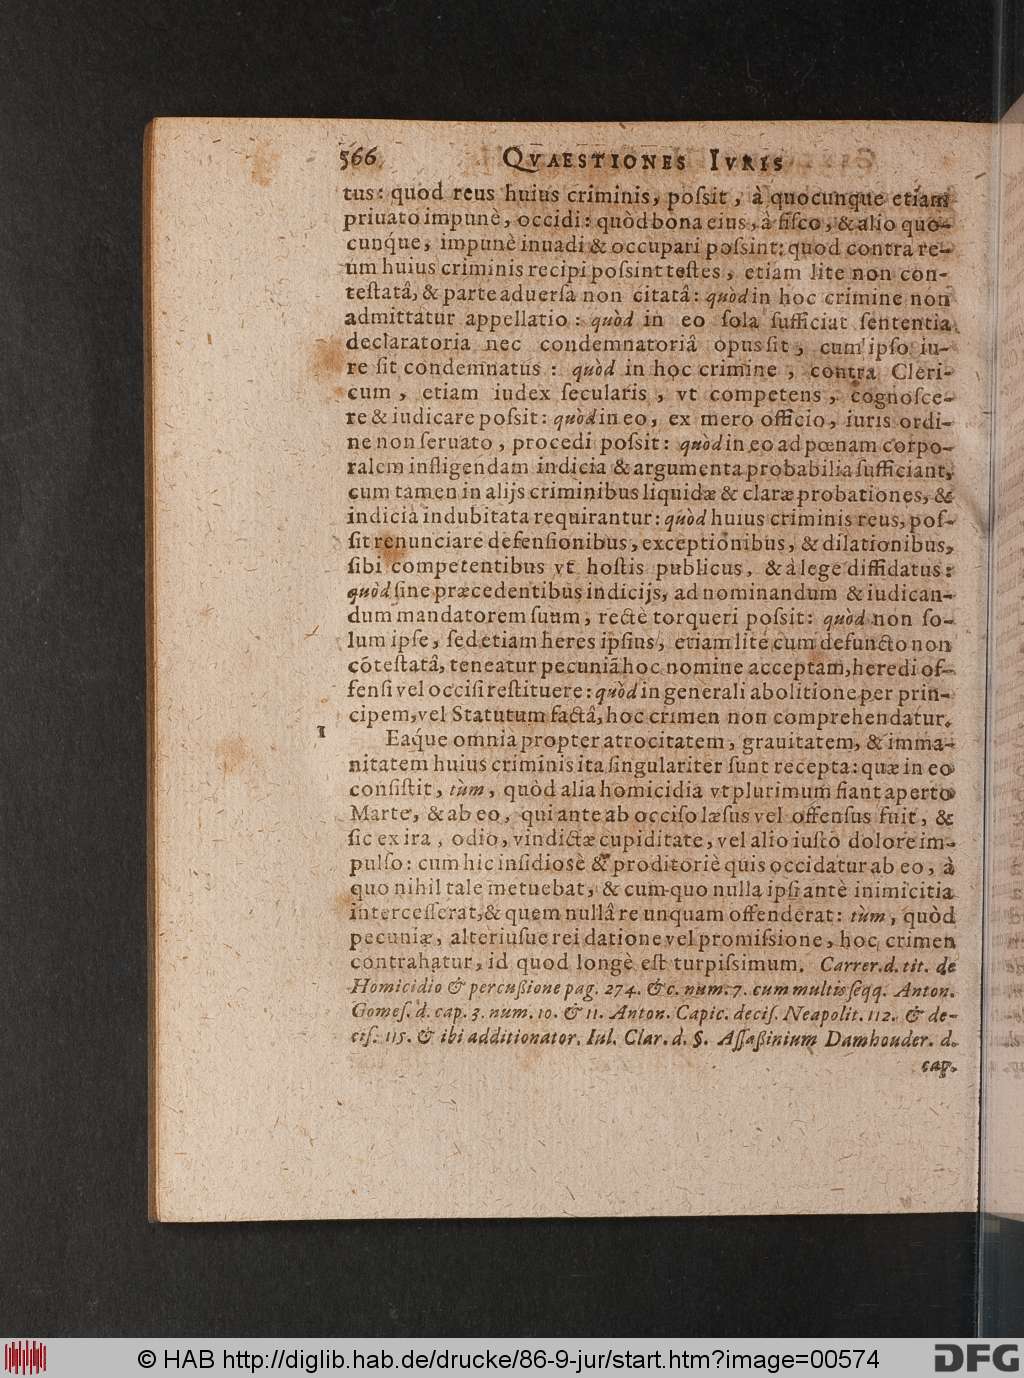 566 QVAESTIONES IVRIS
tus: quod reus huius criminis, poſsit, à quocunque etiam
priuato impunè, occidi: quòd bona eius, à fiſco, & alio quo-
cunq́ue, impunè inuadi & occupari poſsint: quod contra re-
um huius criminis recipi poſsint teſtes, etiam lite non con-
teſtatâ, & parte aduerſa non citatâ: quòd in hoc crimine non
admittatur appellatio: quòd in eo ſola ſufficiat ſententia
declaratoria nec condemnatoriâ opus ſit, cum ipſo iu-
re ſit condemnatus: quòd in hoc crimine, contra Cleri-
cum, etiam iudex ſecularis, vt competens, cognoſce-
re & iudicare poſsit: quòd in eo, ex mero officio, iuris ordi-
ne non ſeruato, procedi poſsit: quòd in eo ad pœnam corpo-
ralem infligendam indicia & argumenta probabilia ſufficiant,
cum tamen in alijs criminibus liquidæ & claræ probationes, &
indicia indubitata requirantur: quòd huius criminis reus, poſ-
ſit renunciare defenſionibus, exceptionibus, & dilationibus,
ſibi competentibus vt hoſtis publicus, & à lege diffidatus:
quòd ſine præcedentibus indicijs, ad nominandum & iudican-
dum mandatorem ſuum, rectè torqueri poſsit: quòd non ſo-
lum ipſe, ſed etiam heres ipſius, etiam lite cum defuncto non
cõteſtatâ, teneatur pecuniã hoc nomine acceptam, heredi of-
fenſi vel occiſi reſtituere: quòd in generali abolitione per prin-
cipem, vel Statutum factâ, hoc crimen non comprehendatur.
1 Eaq́ue omnia propter atrocitatem, grauitatem, & imma-
nitatem huius criminis ita ſingulariter ſunt recepta: quæ in eo
conſiſtit, tùm, quòd alia homicidia vt plurimum fiant aperto
Marte, & ab eo, qui ante ab occiſo læſus vel offenſus fuit, &
ſic ex ira, odio, vindictæ cupiditate, vel alio iuſto dolore im-
pulſo: cum hic inſidiosè & proditoriè quis occidatur ab eo, à
quo nihil tale metuebat, & cum quo nulla ipſi antè inimicitia
interceſſerat, & quem nullâ re unquam offenderat: tùm, quòd
pecuniæ, alteriuſue rei datione vel promiſsione, hoc crimen
contrahatur, id quod longè eſt turpiſsimum. Carrer. d. tit. de
Homicidio & percuſsione pag. 274. &c. num. 7. cum multis ſeqq. Anton.
Gomeſ. d. cap. 3. num. 10. & 11. Anton. Capic. deciſ. Neapolit. 112. & de-
ciſ. 115. & ibi additionator. Iul. Clar. d. §. Aſſaßinium Damhouder. d.
cap.
© HAB http://diglib.hab.de/drucke/86-9-jur/start.htm?image=00574 DFG